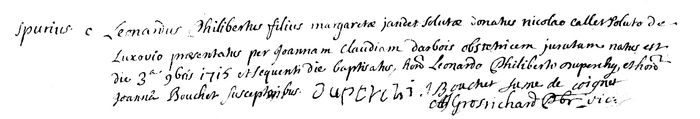 spurius c Leonardus Philibertus filius margaretæ jandet solutæ donatus nicolao callet soluto de
Luxovio præsentatus per joannam claudiam darbois obstetricem juratam natus est
die 3ª 9bris 1715 et sequenti die baptisatus, hon. Leonardo Philiberto duperchy, et honor
joannâ Bouchet susceptoribus. Duperchi. J Bouchet fame de coignet
Grosrichard Pbr vic